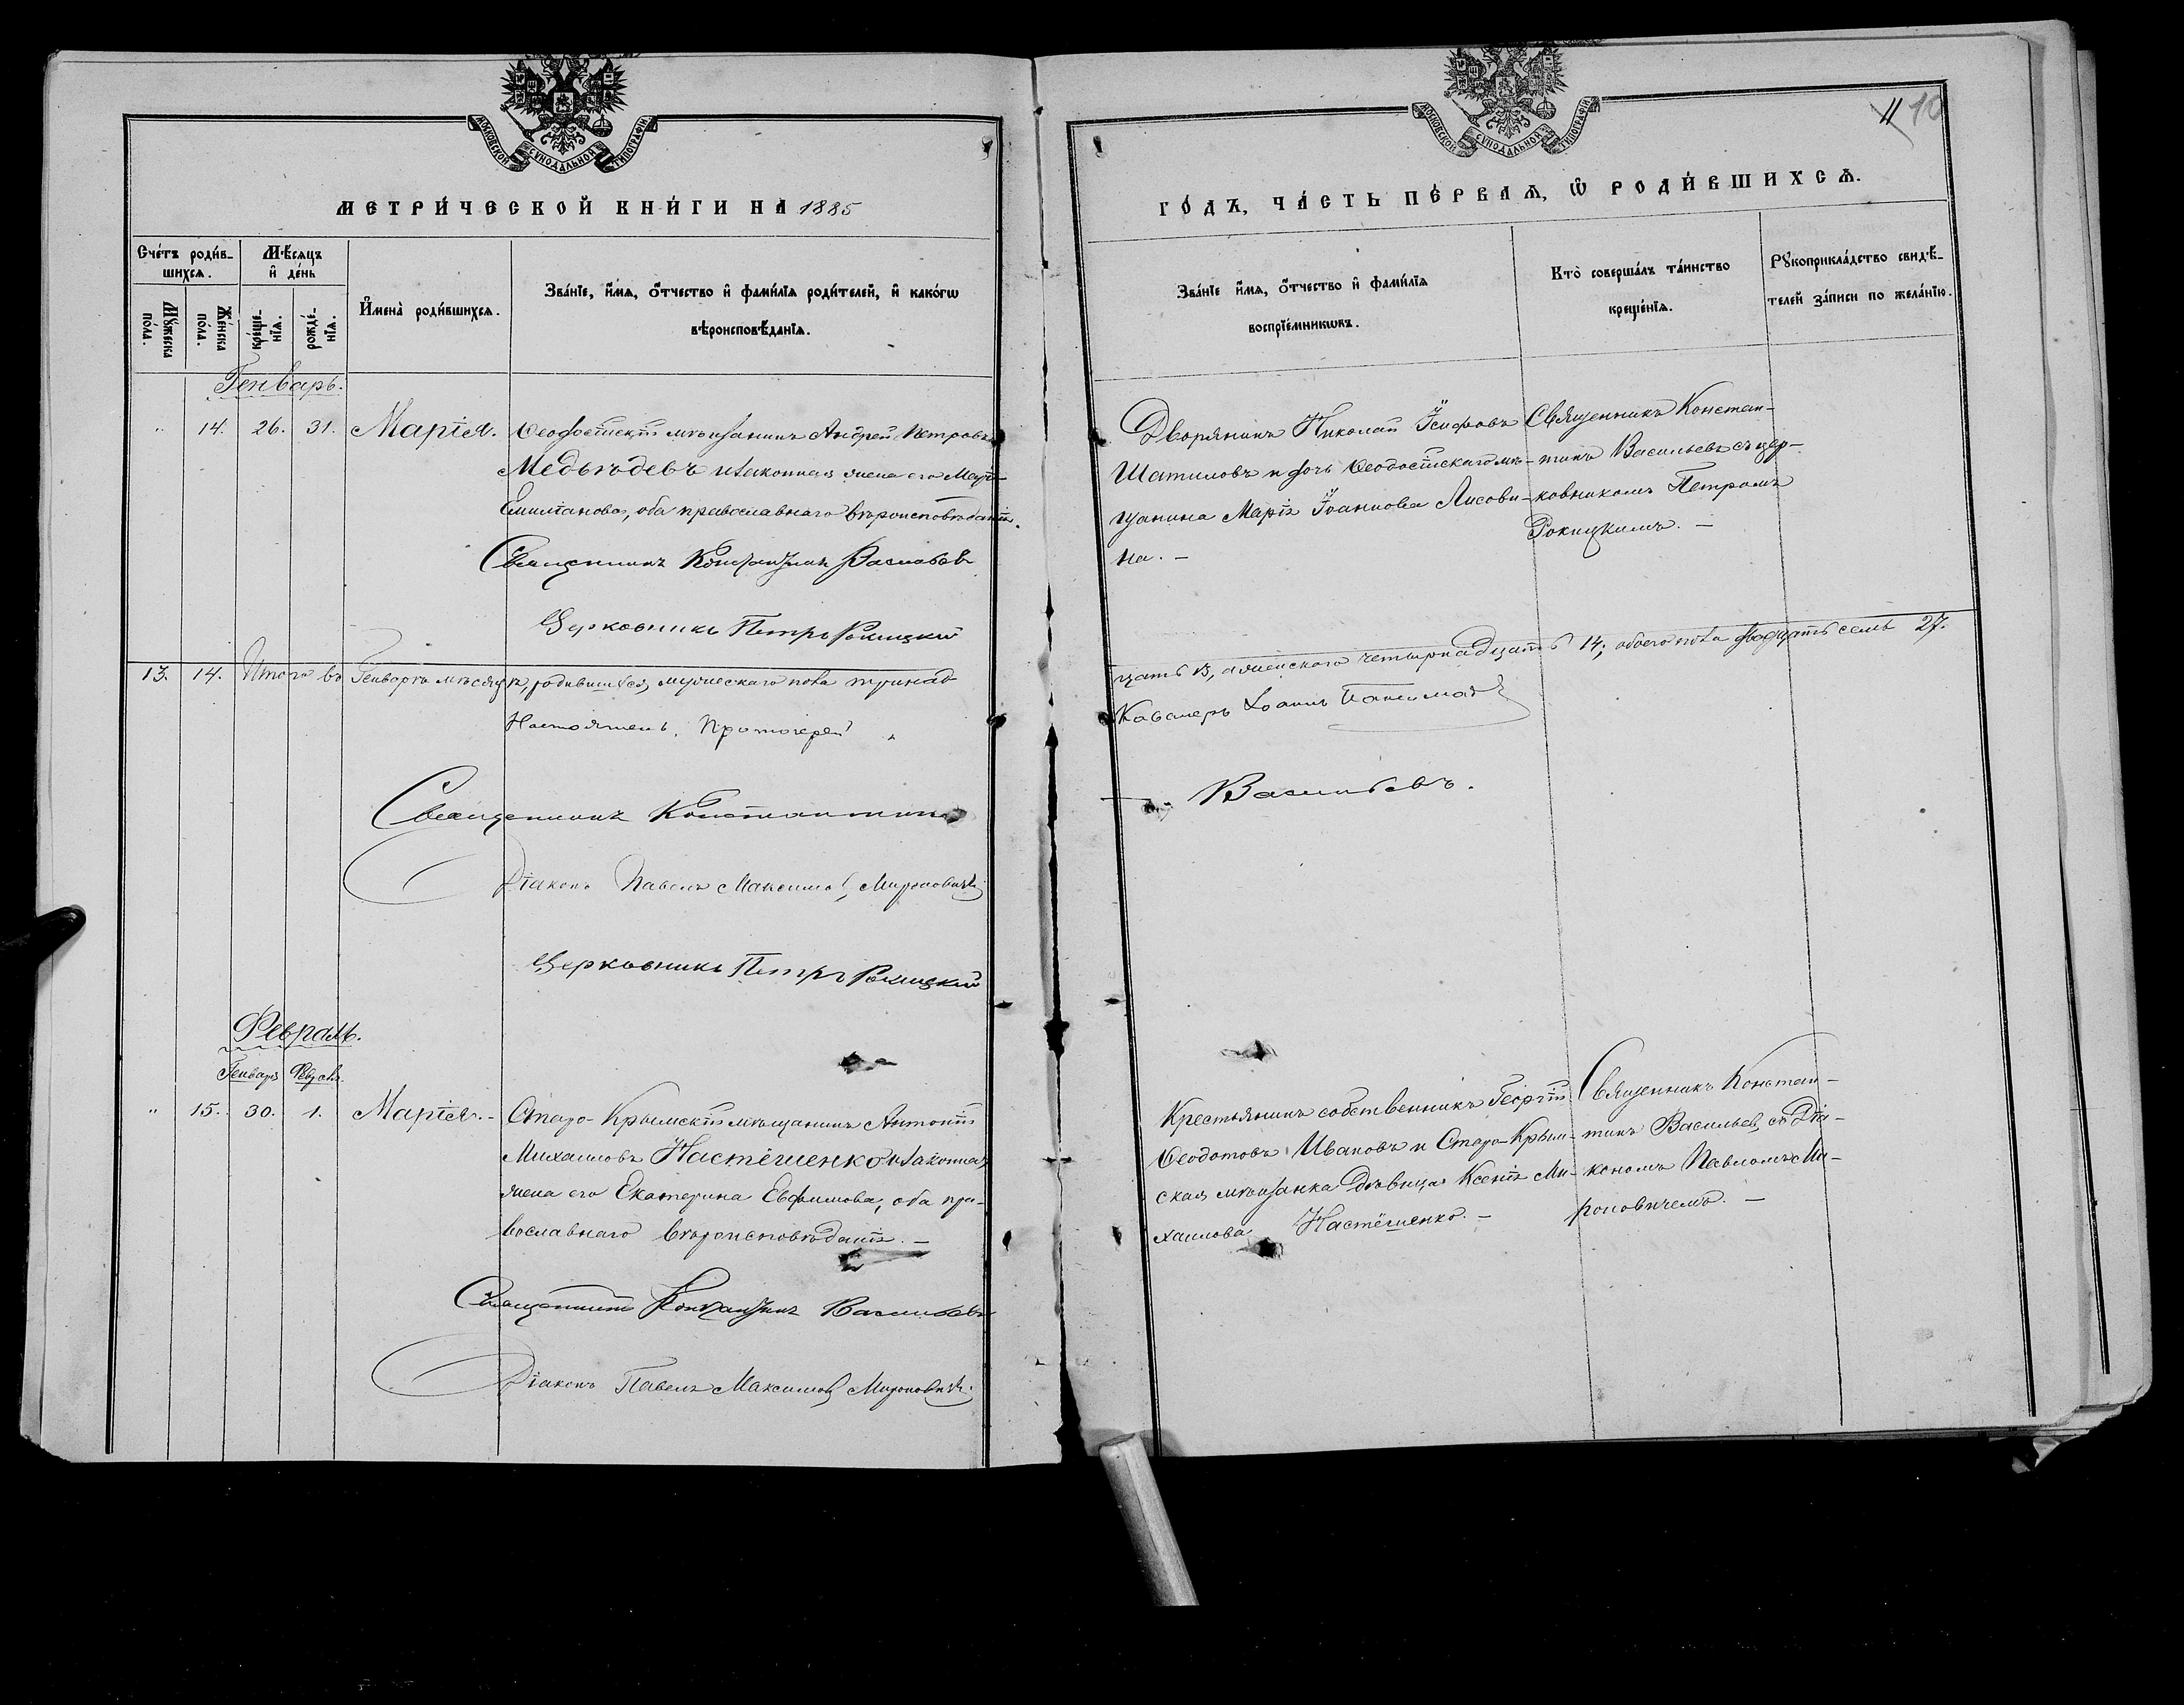 МОСКОВСКОЙ СѴНОДАЛЬНОЙ ТИПОГРАФІИ
МЕТРИ́ЧЕСКОЙ КНИ́ГИ НА 1885
Сче́тъ роди́в-
шихся.
Мѣ́сяцъ
и҆ де́нь
Мꙋ́жеска
по́ла.
Же́нска
по́ла.
креще-
нїѧ.
рожде́-
нїѧ.
И҆мена̀ роди́вшихсѧ.
Зва́нїе, и҆́мѧ, ѻ҆́тчество и҆ фами́лїѧ роди́телей, и҆ како́гѡ
вѣроисповѣ́данїѧ.
Генварь.
" 14. 26. 31. Марія.
Ѳеодосійскій мѣщанинъ Андрей Петровъ
Медвѣдевъ и законная жена его
Емиліанова, оба православнаго вѣроисповѣданія.
Священникъ Константинъ Васильев
Церковникъ Петръ Рокицкій
13. 14. Итого въ Генварѣ мѣсяцѣ, родившихся, мужескаго пола тринад
Настоятель, Протоіерей
Священникъ Константинъ
Діаконъ Павелъ Максимов Мироновичъ
Церковникъ Петръ Рокицкій
Февраль.
Генварь Февраль.
" 15. 30. 1. Марія.-
Старо-Крымскій мѣщанинъ Антоній
Михаиловъ Настёшенко и законная
жена его Екатерина Евфимова, оба пра-
вославнаго вѣроисповѣданія. -
Священникъ Константинъ Васильевъ
Діаконъ Павелъ Максимов Мироновичъ.
МОСКОВСКОЙ СѴНОДАЛЬНОЙ ТИПОГРАФІИ
11 10
ГО́ДЪ, ЧА́СТЬ ПЕ́РВАѦ, Ѡ҆ РОДИ́ВШИХСѦ.
Зва́нїе и҆́мѧ, ѻ҆́тчество и҆ фами́лїѧ
воспрїе́мникѡвъ.
Кто̀ соверша́лъ та́инство
креще́нїѧ.
Рꙋкоприкла́дство свидѣ́-
телей за́писи по жела́нїю.
Дворянинъ Николай Іосифовъ
Шатиловъ и дочь Ѳеодосійскаго мѣ-
щанина Марія Іоаннова Лисови-
на. -
Священникъ Констан-
тинъ Васильевъ съ цер-
ковникомъ Петромъ
Рокицкимъ. -
цать 13, а женскаго четырнадцать 14; обоего пола двадцать семь 27.
Кавалеръ Іоаннъ
Васильевъ.
Крестьянинъ собственникъ Георгій
Ѳеодотовъ Ивановъ и Старо-Крым-
ская мѣщанка дѣвица Ксенія Ми-
хаилова Настёшенко. -
Священникъ Констан-
тинъ Васильев, съ Діа-
кономъ Павломъ Ми-
роновичемъ. -